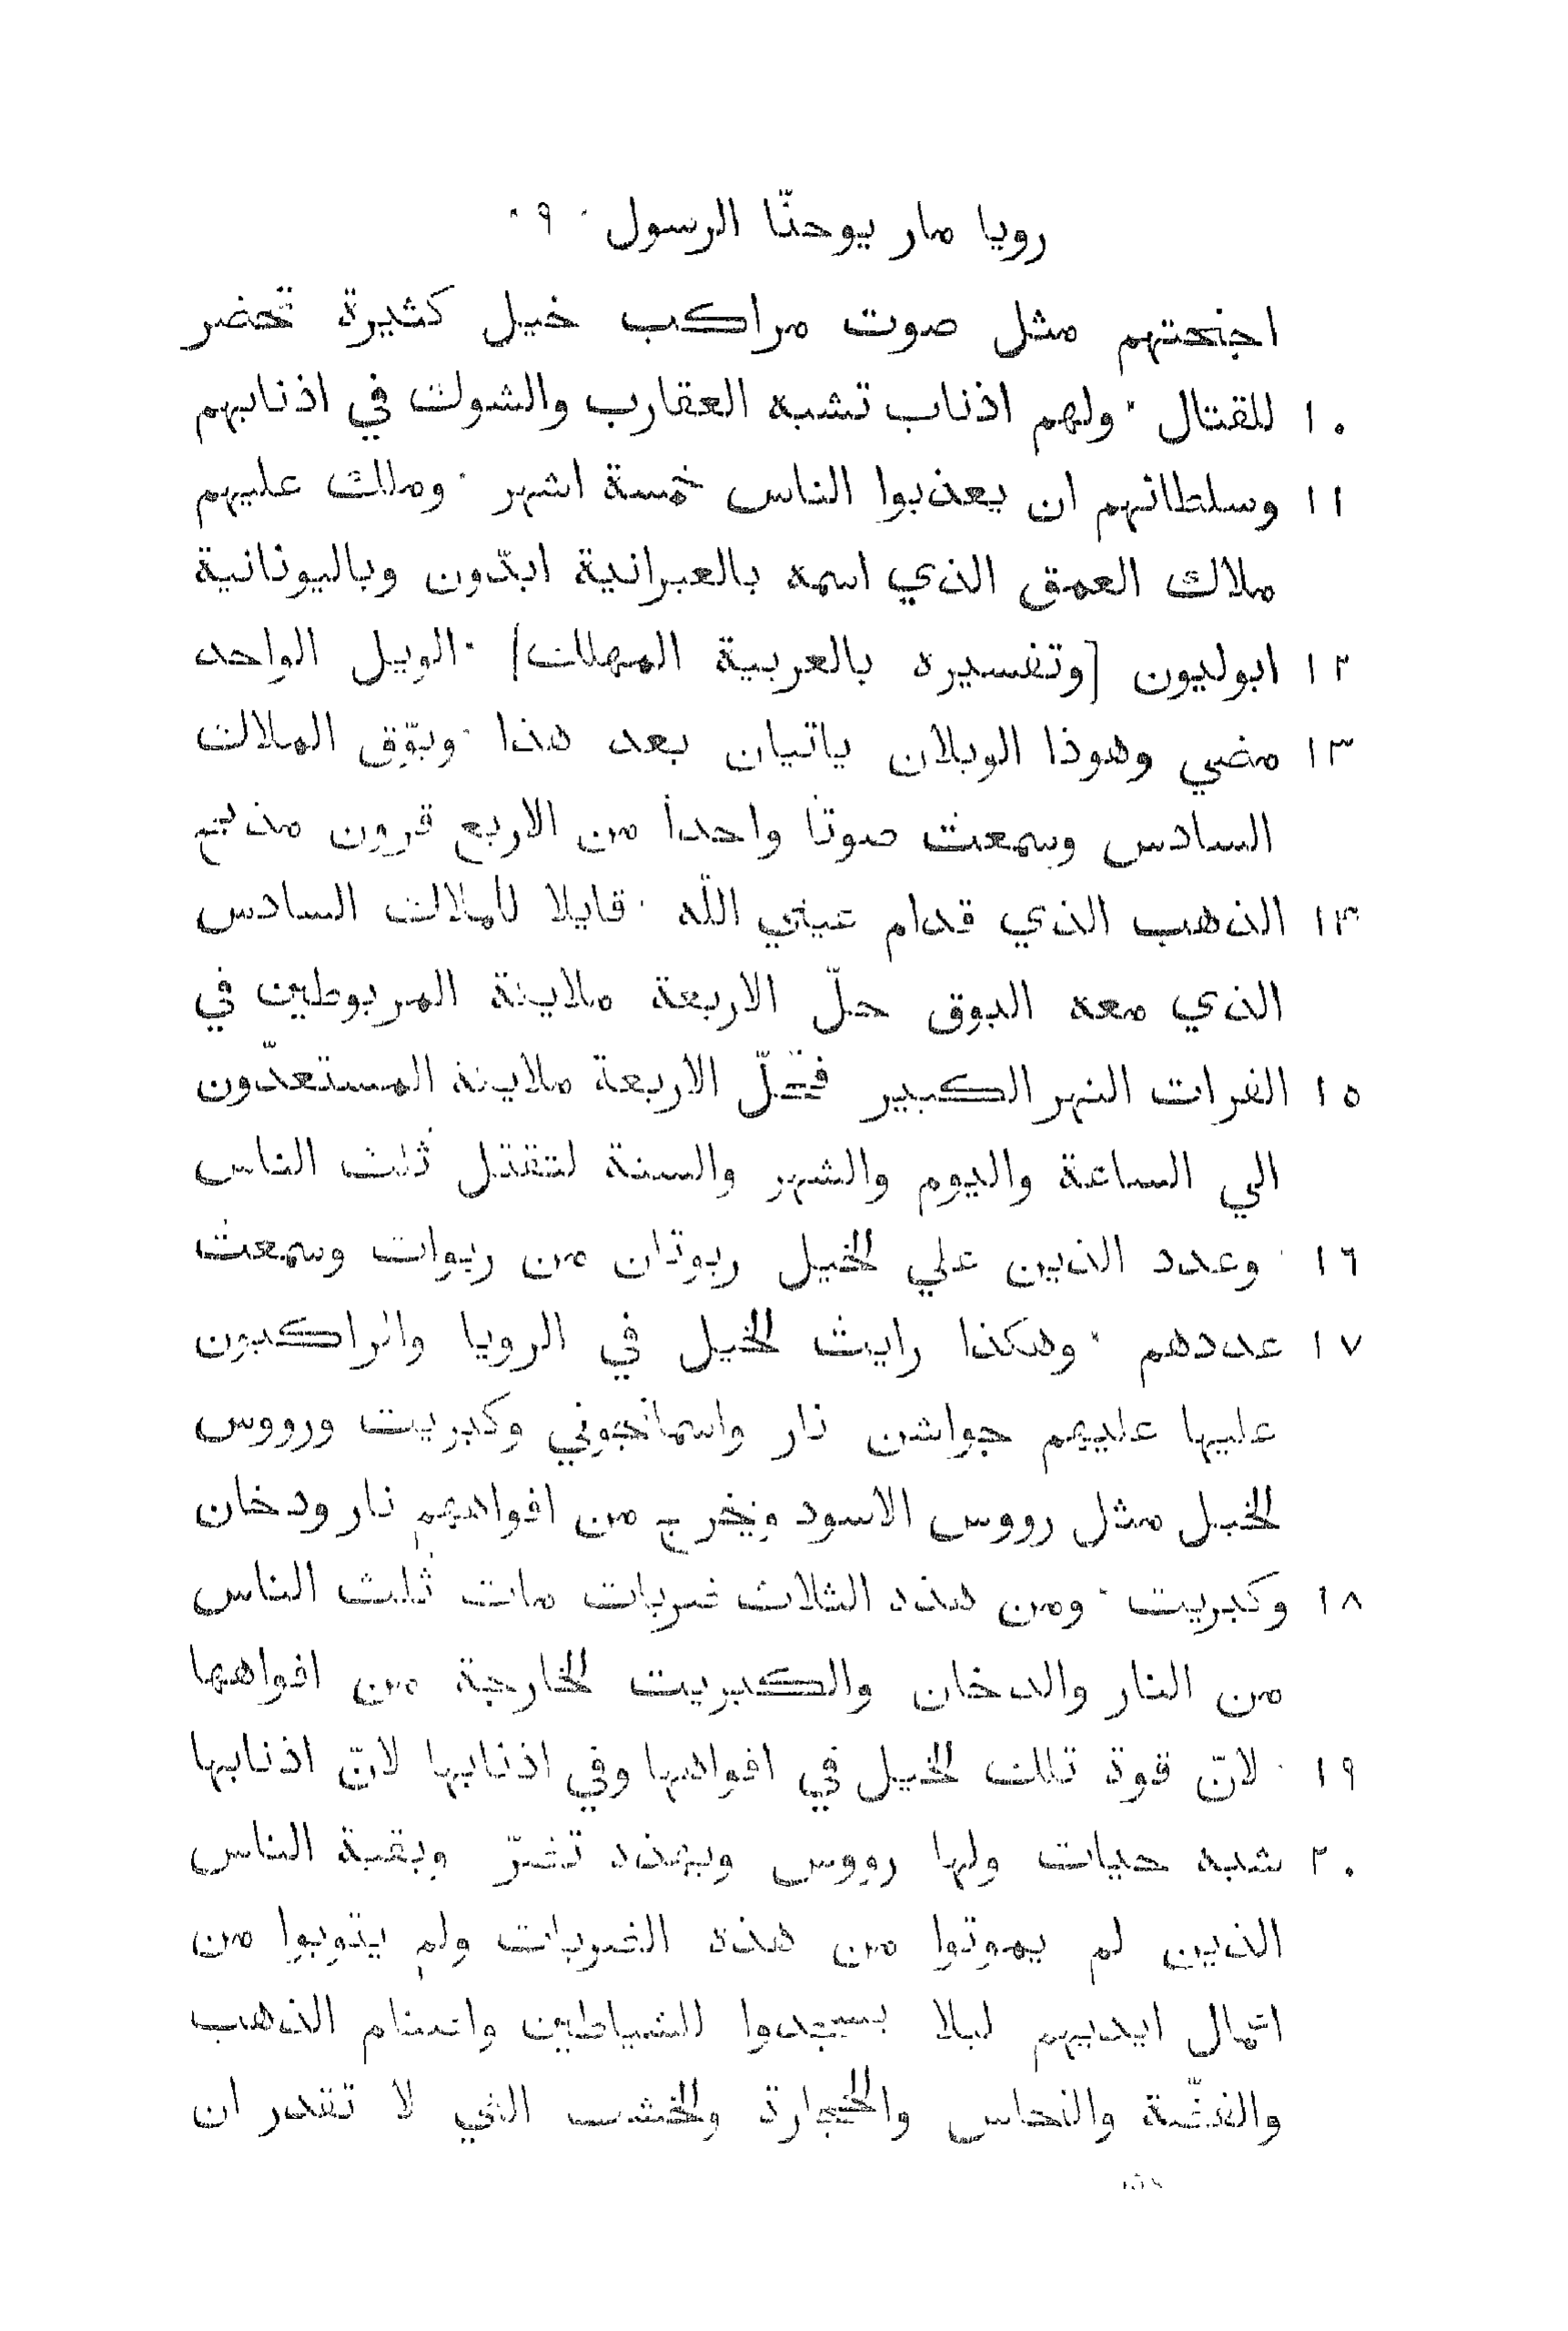 رويا مار يوحنّا الرسول · ٩ ·
اجنحتهم مثل صوت مراكب خيل كثيرة تحضر
١٠ للقتال · ولهم اذناب تشبه العقارب والشوك في اذنابهم
١١ وسلطانهم ان يعذبوا الناس خمسة اشهر · وملك عليهم
ملاك العمق الذي اسمه بالعبرانية ابدّون وباليونانية
١٢ ابوليون [وتفسيره بالعربية المهلك] · الويل الواحد
١٣ مضي وهوذا الويلان ياتيان بعد هذا · وبوّق الملاك
السادس وسمعت صوتا واحدا من الاربع قرون مذبح
١٤ الذهب الذي قدام عيني اللّه · قايلا للملاك السادس
الذي معه البوق حلّ الاربعة ملاينة المربوطين في
١٥ الفرات النهر الكبير فتحلّ الاربعة ملاينة المستعدّون
الي الساعة واليوم والشهر والسنة لتقتل ثلث الناس
١٦ · وعدد الذين علي الخيل ربوتان من ربوات وسمعت
١٧ عددهم · وهكذا رايت الخيل في الرويا والراكبون
عليها عليهم جواشن نار واسمانجوني وكبريت ورووس
الخيل مثل رووس الاسود ويخرج من افواههم نار ودخان
١٨ وكبريت · ومن هذه الثلاث ضربات مات ثلث الناس
من النار والدخان والكبريت الخارجة من افواهها
١٩ · لانّ قوة تلك الخيل في افواهها وفي اذنابها لانّ اذنابها
٢٠ شبه حيات ولها رووس وبهذه تضرّ وبقية الناس
الذين لم يموتوا من هذه الضربات ولم يتوبوا من
اعمال ايديهم ليلا يسجدوا للشياطين واصنام الذهب
والفضّة والنحاس والحجارة والخشب التي لا تقدر ان